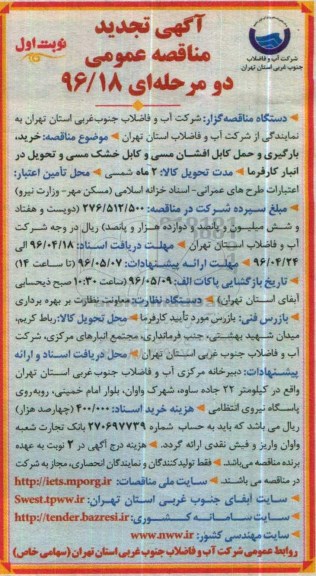 آگهی تجدید
مناقصه عمومی
دو مرحله‌ای ۹۶/۱۸
نوبت اول
شرکت آب و فاضلاب
جنوب غربی استان تهران
دستگاه مناقصه‌گزار: شرکت آب و فاضلاب جنوب‌غربی استان تهران به
نمایندگی از شرکت آب و فاضلاب استان تهران موضوع مناقصه: خرید،
بارگیری و حمل کابل افشان مسی و کابل خشک مسی و تحویل در
انبار کارفرما مدت تحویل کالا: ۲ ماه شمسی محل تأمین اعتبار:
اعتبارات طرح های عمرانی-اسناد خزانه اسلامی (مسکن مهر-وزارت نیرو)
مبلغ سپرده شرکت در مناقصه: ۲۷۶/۵۱۲/۵۰۰ (دویست و هفتاد
و شش میلیون و پانصد و دوازده هزار و پانصد) ریال در وجه شرکت
آب و فاضلاب استان تهران مهلت دریافت اسناد: ۹۶/۰۴/۱۸ الی
۹۶/۰۴/۲۴ مهلت ارائه پیشنهادات: ۹۶/۰۵/۰۷ (تا ساعت ۱۴)
تاریخ بازگشایی پاکات الف: ۹۶/۰۵/۰۹ (ساعت ۱۰:۳۰ صبح ذیحسابی
آبفای استان تهران) دستگاه نظارت: معاونت نظارت بر بهره برداری
بازرس فنی: بازرس مورد تأیید کارفرما محل تحویل کالا: رباط کریم،
میدان شهید بهشتی، جنب فرمانداری، مجتمع انبارهای مرکزی، شرکت
آب و فاضلاب جنوب غربی استان تهران محل دریافت اسناد و ارائه
پیشنهادات: دبیرخانه مرکزی آب و فاضلاب جنوب غربی استان تهران
واقع در کیلومتر ۲۲ جاده ساوه، شهرک واوان، بلوار امام خمینی، روبه‌روی
پاسگاه نیروی انتظامی هزینه خرید اسناد: ۴۰۰/۰۰۰ (چهارصد هزار)
ریال می باشد که باید به حساب شماره ۲۷۰۶۹۷۷۳۹ بانک تجارت شعبه
واوان واریز و فیش نقدی ارائه گردد. هزینه درج آگهی در ۲ نوبت به عهده
برنده مناقصه می‌باشد. فقط تولیدکنندگان و نمایندگان انحصاری، مجاز به شرکت
در مناقصه می باشند. سایت ملی مناقصات: http://iets.mporg.ir
سایت آبفای جنوب غربی استان تهران: Swest.tpww.ir
سایت سامانه کشوری: http://tender.bazresi.ir
سایت مهندسی کشور: www.nww.ir
روابط عمومی شرکت آب و فاضلاب جنوب غربی استان تهران (سهامی خاص)